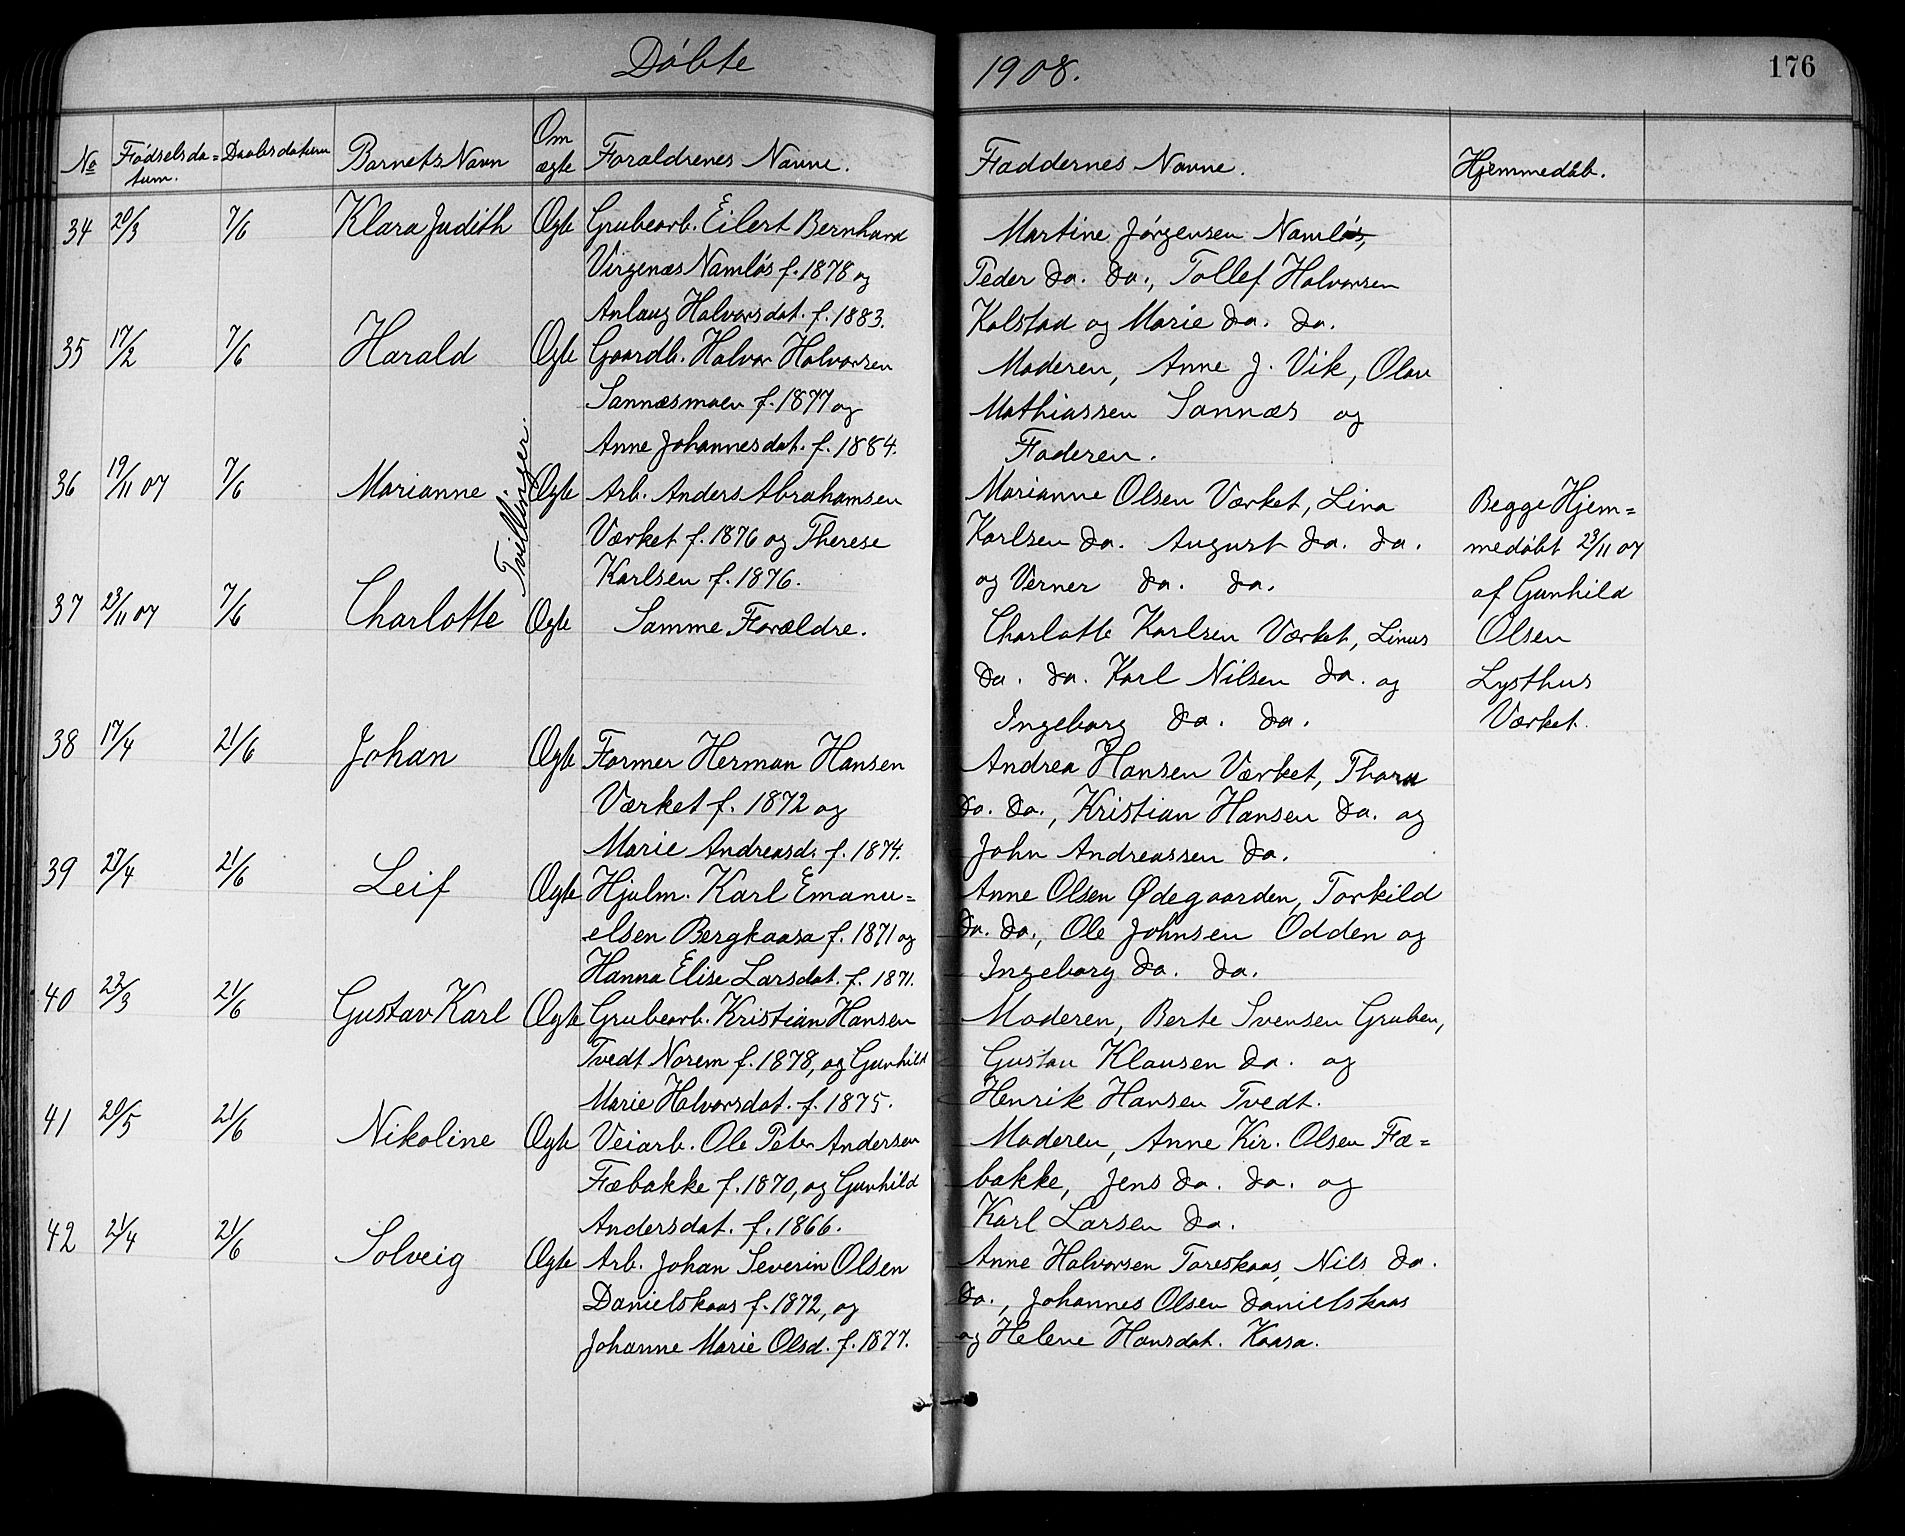 Døbte 1908. 176
No Fødselsda= Daabsdatum Barnets Navn Om Forældrenes Navne. Faddernes Navne. Hjemmedåb.
tum. ægte
34 20/3 7/6 Klara Judith Ægte Grubearb. Eilert Bernhard Martine Jørgensen Namløs,
Virgenæs Namløs f. 1878 og Peder do. do., Tollef Halvorsen
Anlaug Halvorsdat. f. 1883. Kolstad og Marie do. do.
35 17/2 7/6 Harald Ægte Gaardb. Halvor Halvorsen Moderen, Anne J. Vik, Olav
Sannæsmoen f. 1877 og Mathiassen Sannæs og
Anne Johannesdat. f. 1884. Faderen.
36 19/11 07 7/6 Marianne Tvillinger. Ægte Arb. Anders Abrahamsen Marianne Olsen Værket, Lina Begge Hjem=
Værket f. 1876 og Therese Karlsen do. August do. do. medøbt 23/11 07
Karlsen f. 1876. og Verner do. do. af Gunhild
37 23/11 07 7/6 Charlotte Ægte Samme Forældre. Charlotte Karlsen Værket, Linus Olsen
do. do. Karl Nilsen do. og Lysthus
Ingeborg do. do. Værket.
38 17/4 21/6 Johan Ægte Former Herman Hansen Andrea Hansen Værket, Thora
Værket f. 1872 og do. do., Kristian Hansen do. og
Marie Andreasd. f. 1874. John Andreassen do.
39 27/4 21/6 Leif Ægte Hjulm. Karl Emanu= Anne Olsen Ødegaarden, Torkild
elsen Bergkaasa f. 1871 og do. do., Ole Johnsen Odden og
Hanna Elise Larsdat. f. 1871. Ingeborg do. do.
40 22/3 21/6 Gustav Karl Ægte Grubearb. Kristian Hansen Moderen, Berte Svensen Gruben,
Tvedt Norem f. 1878, og Gunhild Gustav Klausen do. og
Marie Halvorsdat. f. 1875. Henrik Hansen Tvedt.
41 20/5 21/6 Nikoline Ægte Veiarb. Ole Peter Andersen Moderen, Anne Kir. Olsen Fæ=
Fæbakke f. 1870, og Gunhild bakke, Jens do. do. og
Andersdat. f. 1866. Karl Larsen do.
42 21/4 21/6 Solveig Ægte Arb. Johan Severin Olsen Anne Halvorsen Toreskaas, Nils do.
Danielskaas f. 1872, og do., Johannes Olsen Danielskaas
Johanne Marie Olsd. f. 1877. og Helene Hansdat. Kaasa.